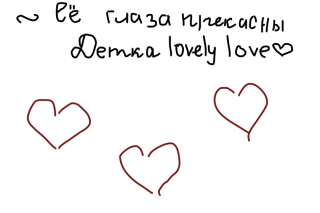 ~ Её глаза прекасны
Детка lovely love♡